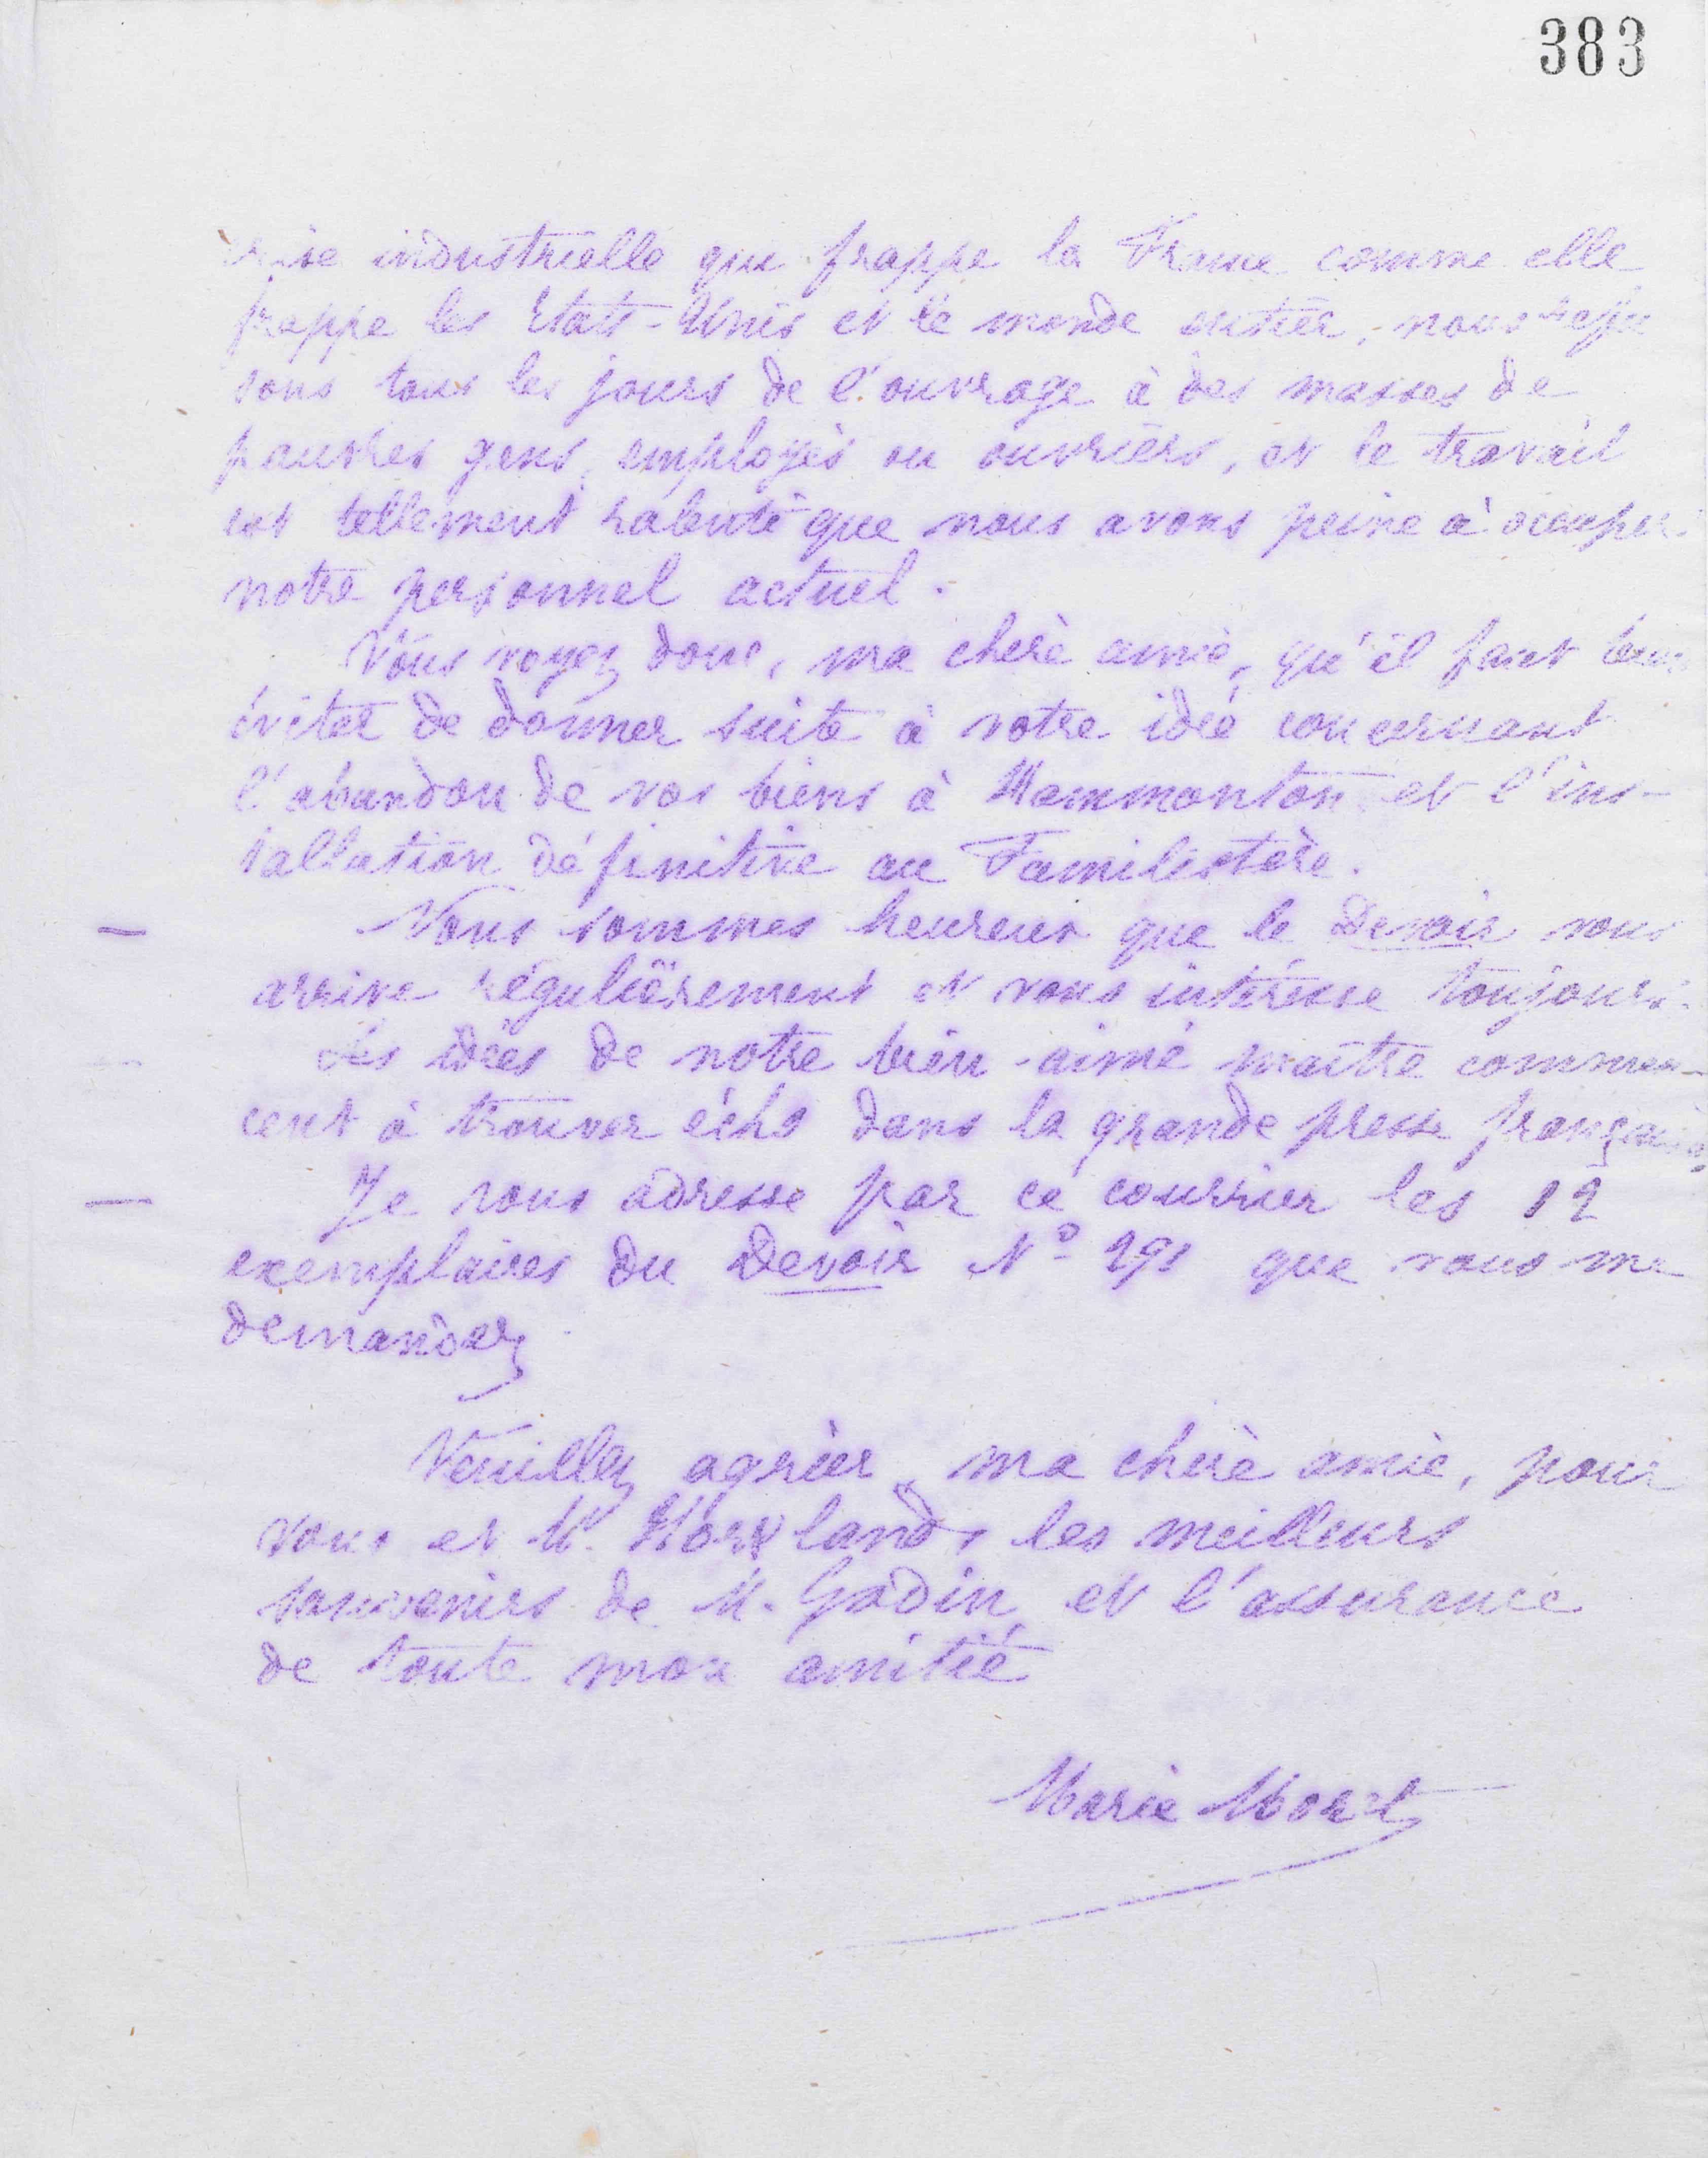 383
crise industrielle qui frappe la France comme elle
frappe les Etats-Unis et le monde entier, nous refu
sons tous les jours de l'ouvrage à des masses de
pauvres gens, employés ou ouvriers, et le travail
est tellement ralenti que nous avons peine à occuper
notre personnel actuel.
Vous voyez donc, ma chère amie, qu'il faut bien
éviter de donner suite à votre idée concernant
l'abandon de vos biens à Hammonton et l'ins-
tallation définitive au Familistère.
Nous sommes heureux que le Devoir vous
arrive régulièrement et vous intéresse toujours.
Les idées de notre bien-aimé maître commen-
cent à trouver écho dans la grande presse française.
Je vous adresse par ce courrier les 12
exemplaires du Devoir No 291 que vous me
demandez.
Veuillez agréer, ma chère amie, pour
vous et M. Howland, les meilleurs
souvenirs de M. Godin et l'assurance
de toute mon amitié
Marie Moret